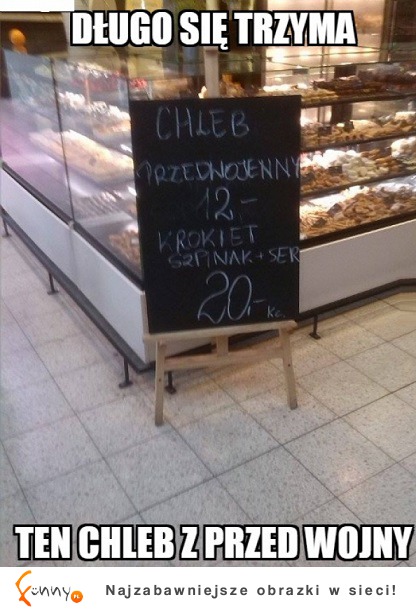 DŁUGO SIĘ TRZYMA
CHLEB
PRZEDWOJENNY
12,-
KROKIET
SZPINAK + SER
20,- KG.
TEN CHLEB Z PRZED WOJNY
funny.PL Najzabawniejsze obrazki w sieci!